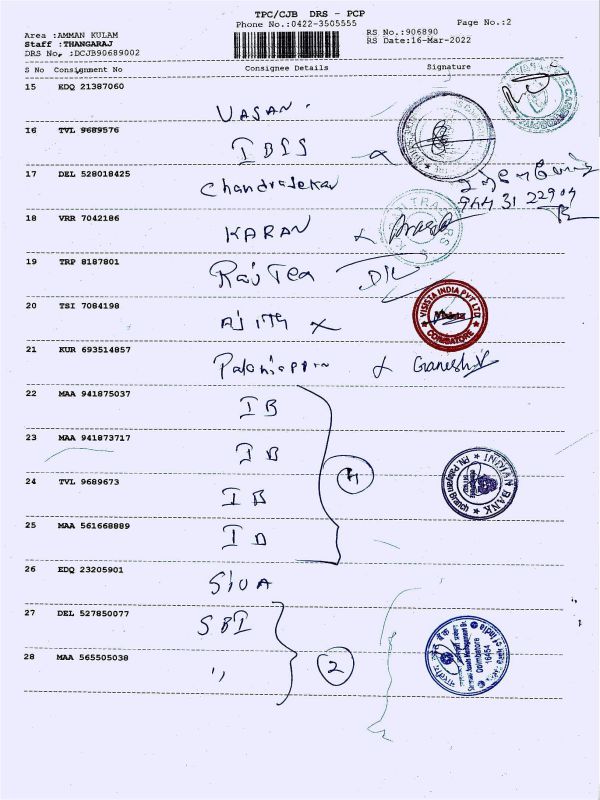 TPC/CJB DRS - PCP
Phone No.:0422-3505555
Page No.:2
Area :AMMAN KULAM
RS No.:906890
Staff :THANGARAJ
RS Date:16-Mar-2022
DRS No. :DCJB90689002
S No Consignment No Consignee Details Signature
15 EDQ 21387060
VASAN
16 TVL 9689576
17 DEL 528018425
Chandrasekar
18 VRR 7042186
KARAN
19 TRP 8187801
Raj Tea
20 TSI 7084198
VISISTA INDIA PVT LTD
COIMBATORE
21 KUR 693514857
Ganesh
22 MAA 941875037
IB
23 MAA 941873717
IB
4
24 TVL 9689673
IB
INDIAN BANK
PN. Palayam Branch
25 MAA 561668889
26 EDQ 23205901
SIVA
27 DEL 527850077
SBI
Coimbatore
16454
28 MAA 565505038
,,
2